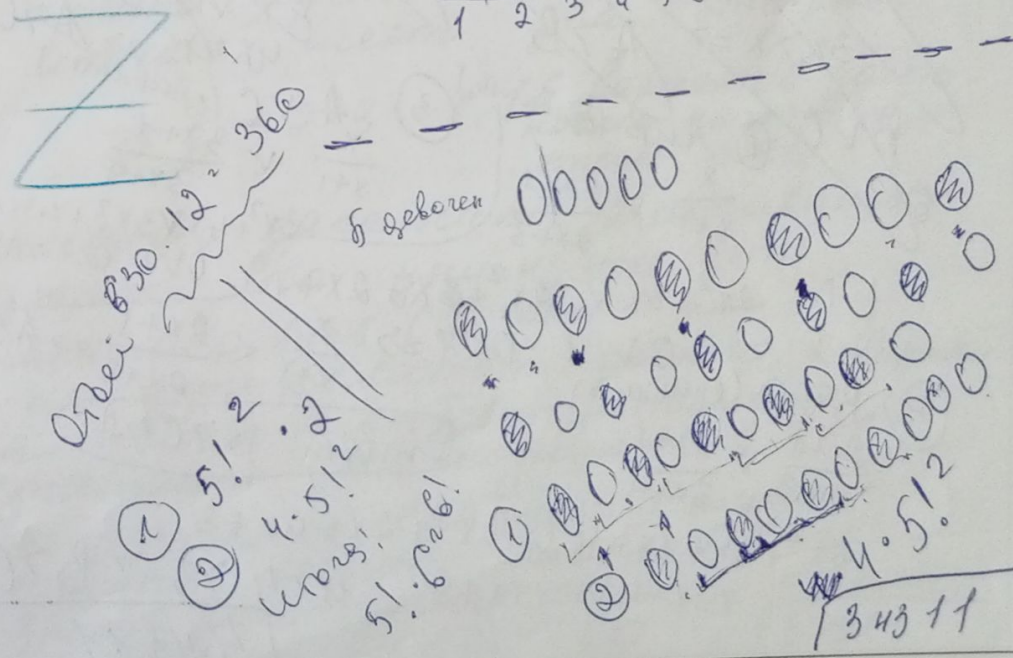 Z
1 2 3 4
Ответ 30·12 = 360
5 девочек
① 5!² · 2
② 4·5!²
Итого:
5!·6=6!
①
②
4·5!²
34311